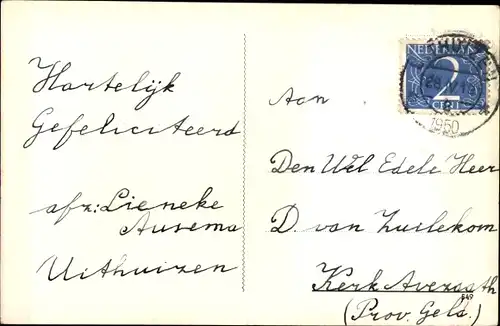 Hartelijk
Gefeliciteerd
afz: Lieneke
Ausema
Uithuizen
NEDERLAND
2
CENT
1950
Aan
Den Wel Edele Heer
D. van Zuilekom
Kerk Avezaath
649
(Prov. Geld.)